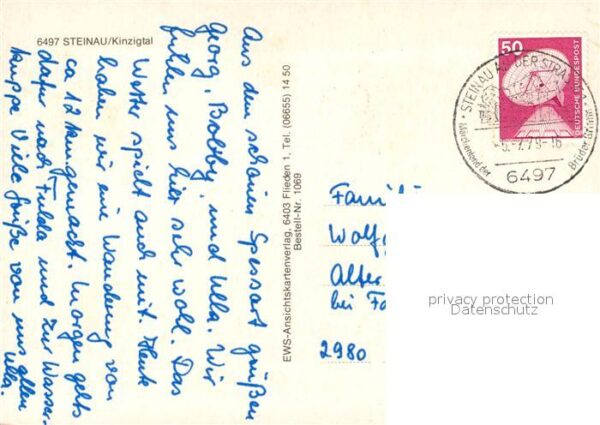 6497 STEINAU/Kinzigtal
Aus dem schönen Spessart grüßen
Georg, Bobby, und Ulla. Wir
fühlen uns hier sehr wohl. Das
Wetter spielt auch mit. Heute
haben wir eine Wanderung von
ca 12 km gemacht. Morgen gehts
dafür nach Fulda und zur Wasser-
kuppe Viele Grüße von uns allen
Ulla.
EWS-Ansichtskartenverlag, 6403 Flieden 1, Tel. (06655) 14 50
Bestell-Nr. 1069
50
DEUTSCHE BUNDESPOST
STEINAU AN DER STRA
Märchenland der Brüder Grimm
6497
Famili
Wolfg
Alter
bei Fa
2980
privacy protection
Datenschutz